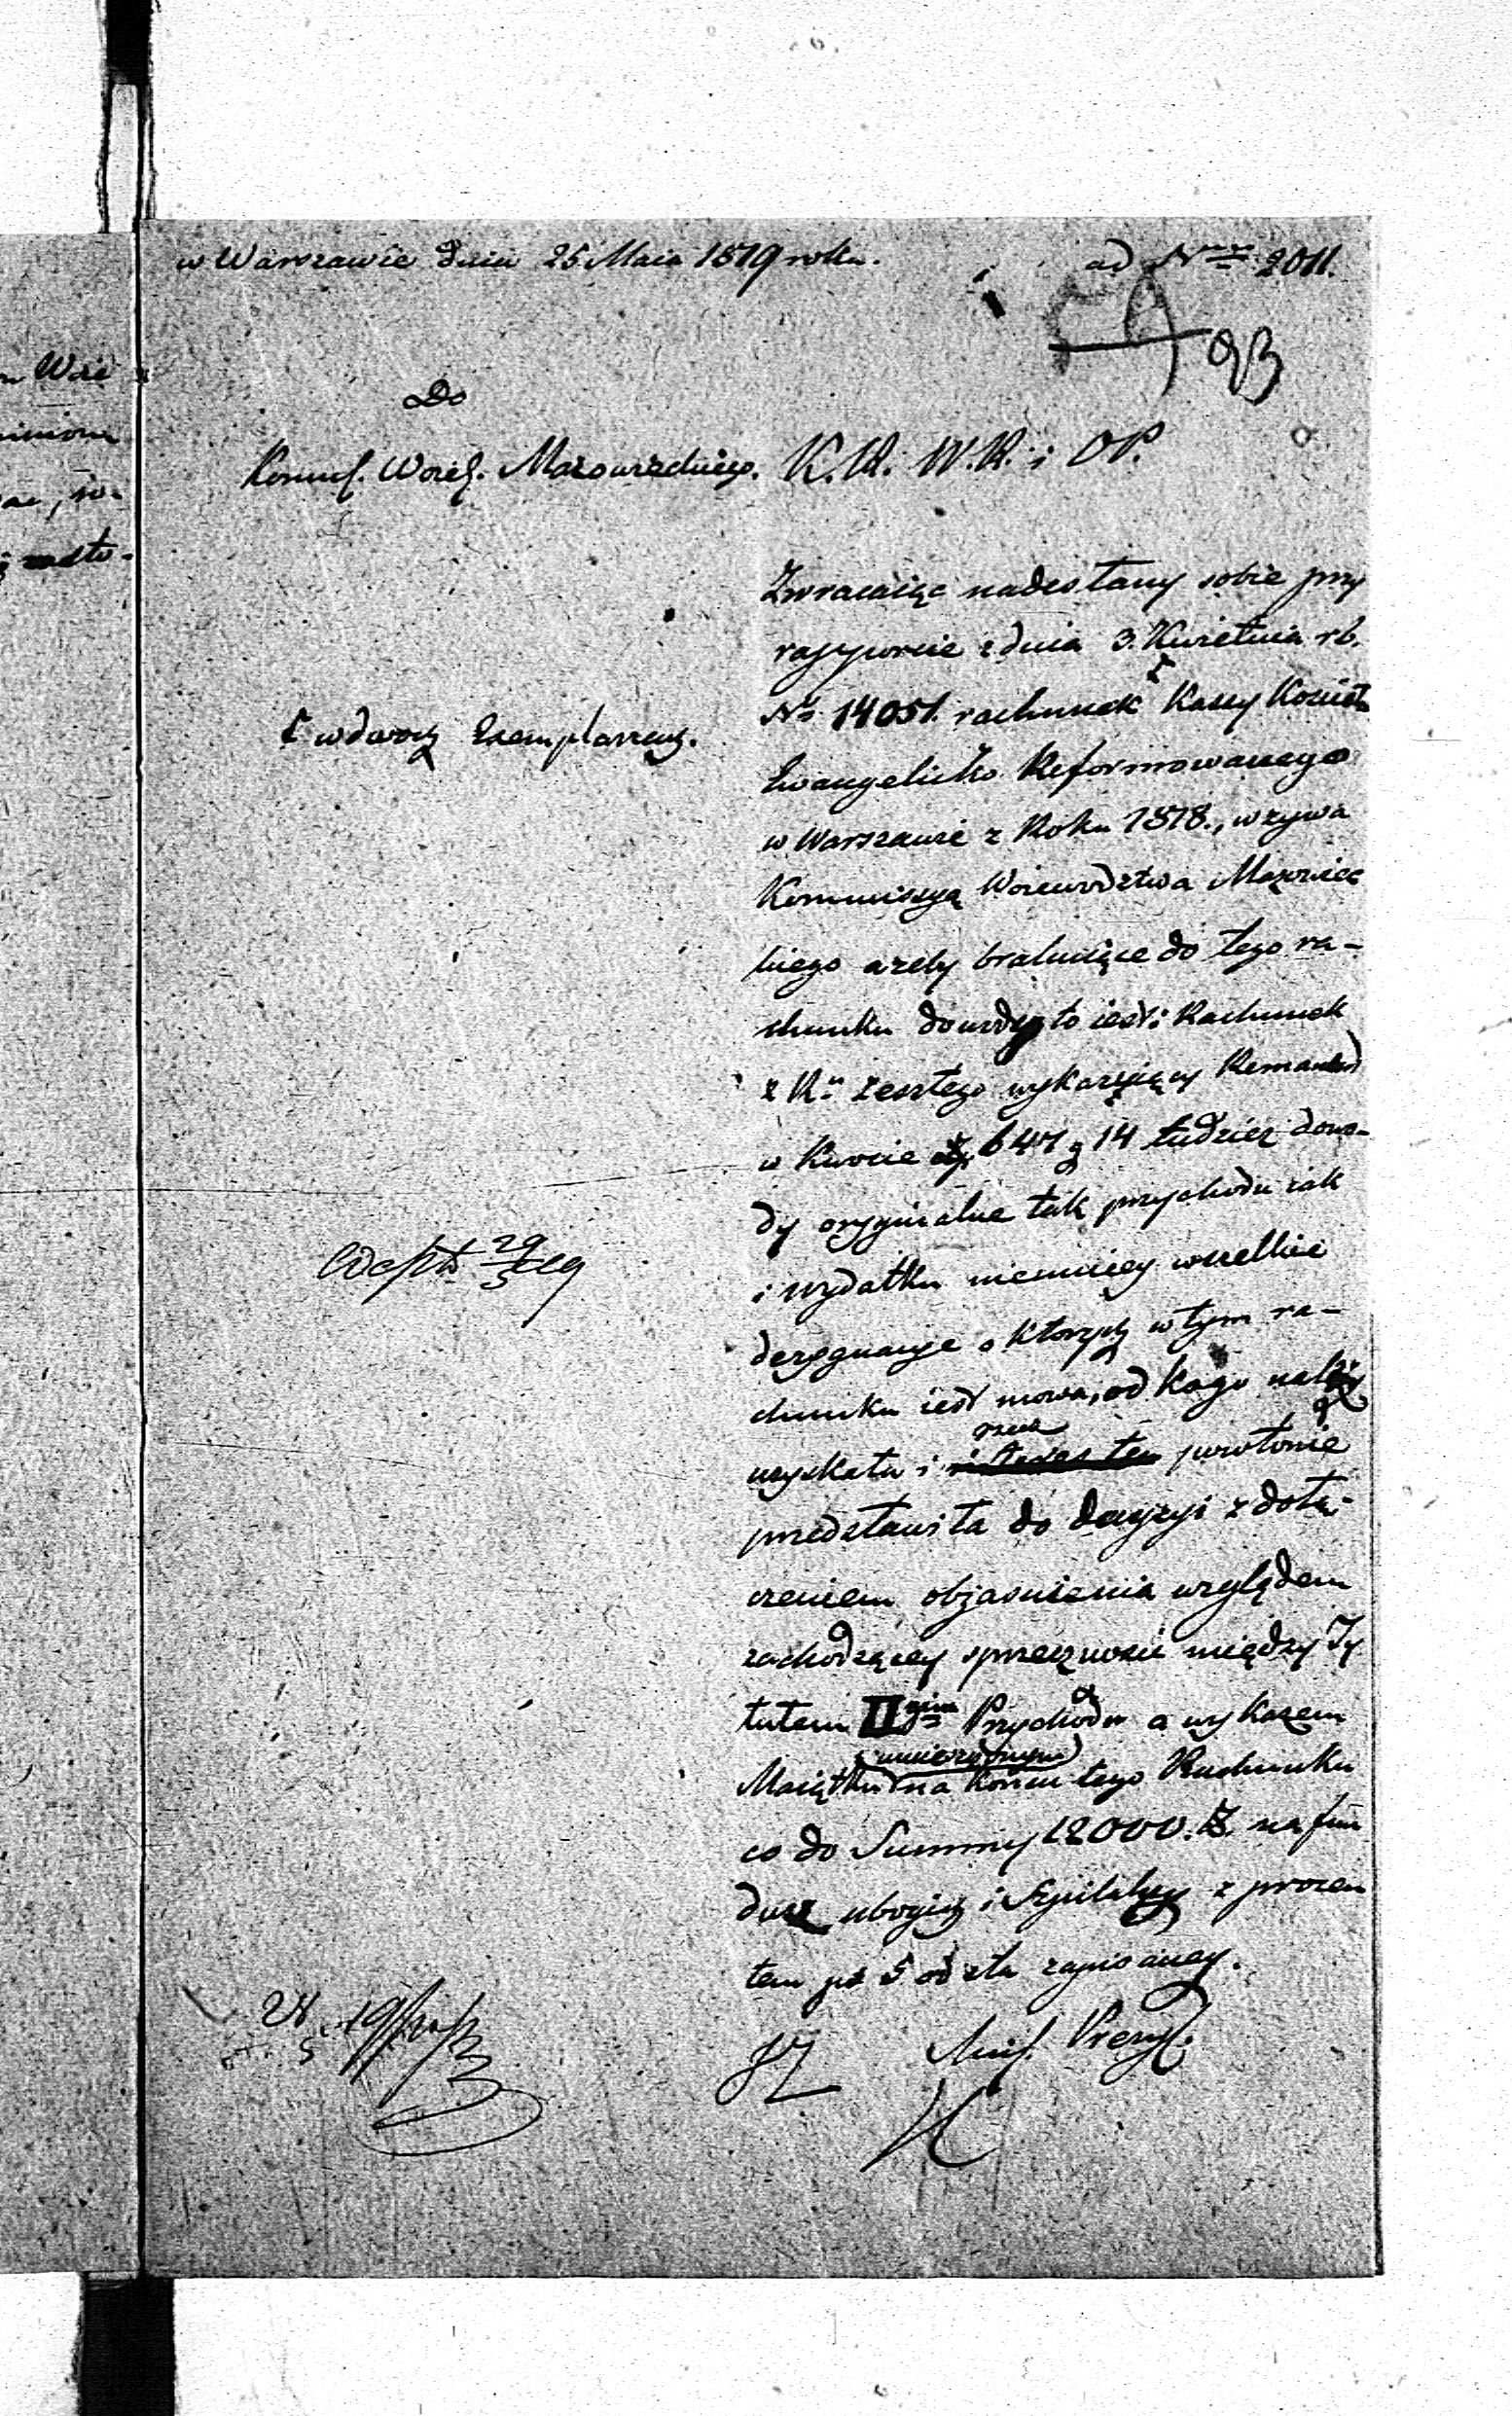 w Warszawie Dnia 25 Maia 1819 roku.
ad Nrum 2011.
93
Do
Kommiss. Woież. Mazowieckiego.
K. R. W. R. i OP.
Zwracaiąc nadesłany sobie przy
rapporcie z dnia 3. Kwietnia rb.
No 14051. rachunek Kassy Kościoła
w dwóch Exemplarzach.
Ewangelicko Reformowanego
w Warszawie z Roku 1818., wzywa
Kommissyą Woiewodztwa Mazowiec
kiego ażeby brakuiące do tego ra-
chunku dowody to iest: Rachunek
z R. zeszłego wykazuiący Remanent
w Kwocie 647 g 14 tudzież dowo-
dy oryginalne tak przychodu iak
i wydatku niemniey wszelkie
dezygnacye o których w tym ra-
chunku iest mowa, od kogo należy
uzyskała i powtórnie
przedstawiła do decyzyi z dołą-
czeniem objasnienia względem
zachodzącey sprzeczności między Ty
tułem IIgim Przychodu a wykazem
Maiątku na końcu tego Rachunku
umieszczonym
co do Summy 12000. na fun
dusz ubogich i Szpitalny z procen
tem po 5 od sta zapisaney.
Min. Prezyd.